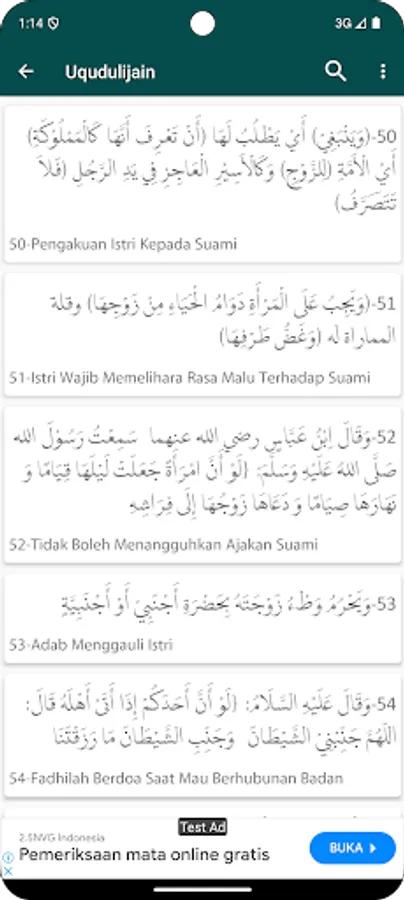 1:14 3G
Uqudulijain
50-(وَيَنْبَغِيْ) أَيْ يَطْلُبُ لَهَا (أَنْ تَعْرِفَ أَنَّهَا كَالْمَمْلُوْكَةِ)
أَيْ الْأَمَّةِ (لِلزَّوْجِ) وَكَالْأَسِيْرِ الْعَاجِزِ فِي يَدِ الرَّجُلِ (فَلَا
تَتَصَرَّفُ)
50-Pengakuan Istri Kepada Suami
51-(وَيَجِبُ عَلَى الْمَرْأَةِ دَوَامُ الْحَيَاءِ مِنْ زَوْجِهَا) وقلة
المماراة له (وَغَضُّ طَرْفِهَا)
51-Istri Wajib Memelihara Rasa Malu Terhadap Suami
52-وَقَالَ اِبْنُ عَبَّاسٍ رضي الله عنهما سَمِعْتُ رَسُوْلَ الله
صَلَّى اللهُ عَلَيْهِ وَسَلَّمَ: {لَوْ أَنَّ امْرَأَةً جَعَلَتْ لَيْلَهَا قِيَامًا وَ
نَهَارَهَا صِيَامًا وَ دَعَاهَا زَوْجُهَا إِلَى فِرَاشِهِ
52-Tidak Boleh Menangguhkan Ajakan Suami
53-وَيَحْرُمُ وَطْءُ زَوْجَتَهُ بِحَضْرَةِ أَجْنَبِيْ أَوْ أَجْنَبِيَّةٍ
53-Adab Menggauli Istri
54-وَقَالَ عَلَيْهِ السَّلَامُ: {لَوْ أَنَّ أَحَدَكُمْ إِذَا أَتَى أَهْلَهُ قَالَ:
اَللّٰهُمَّ جَنِّبْنِيْ الشَّيْطَانَ وَجَنِّبِ الشَّيْطَانَ مَا رَزَقْتَنَا
54-Fadhilah Berdoa Saat Mau Berhubunan Badan
Test Ad
2.5NVG Indonesia
Pemeriksaan mata online gratis
BUKA